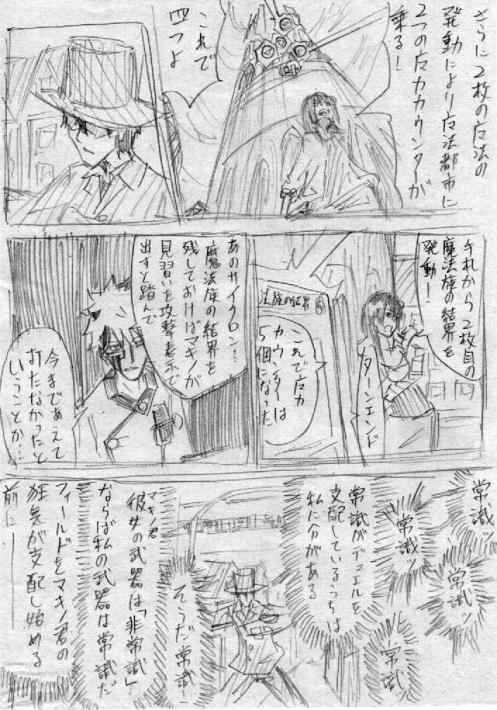 さらに2枚の魔法の
発動により魔法都市に
2つの魔力カウンターが
乗る!
これで
四つよ
手札から2枚目の
魔法族の結界を
発動!
ターンエンド
法族の結界
これで魔力
カウンターは
5個になった
あのサイクロン…!
魔法族の結界を
残しておけばマキノが
見習いを攻撃表示で
出すと踏んで
今まであえて
打たなかったと
いうことか…
常識ッ
常識ッ
常識ッ
常識ッ
常識がデュエルを
支配しているうちは
私に分がある
そうだ常識!
マキノ君
彼女の武器は「非常識」
ならば私の武器は常識だ
フィールドをマキノ君の
狂気が支配し始める
前に―